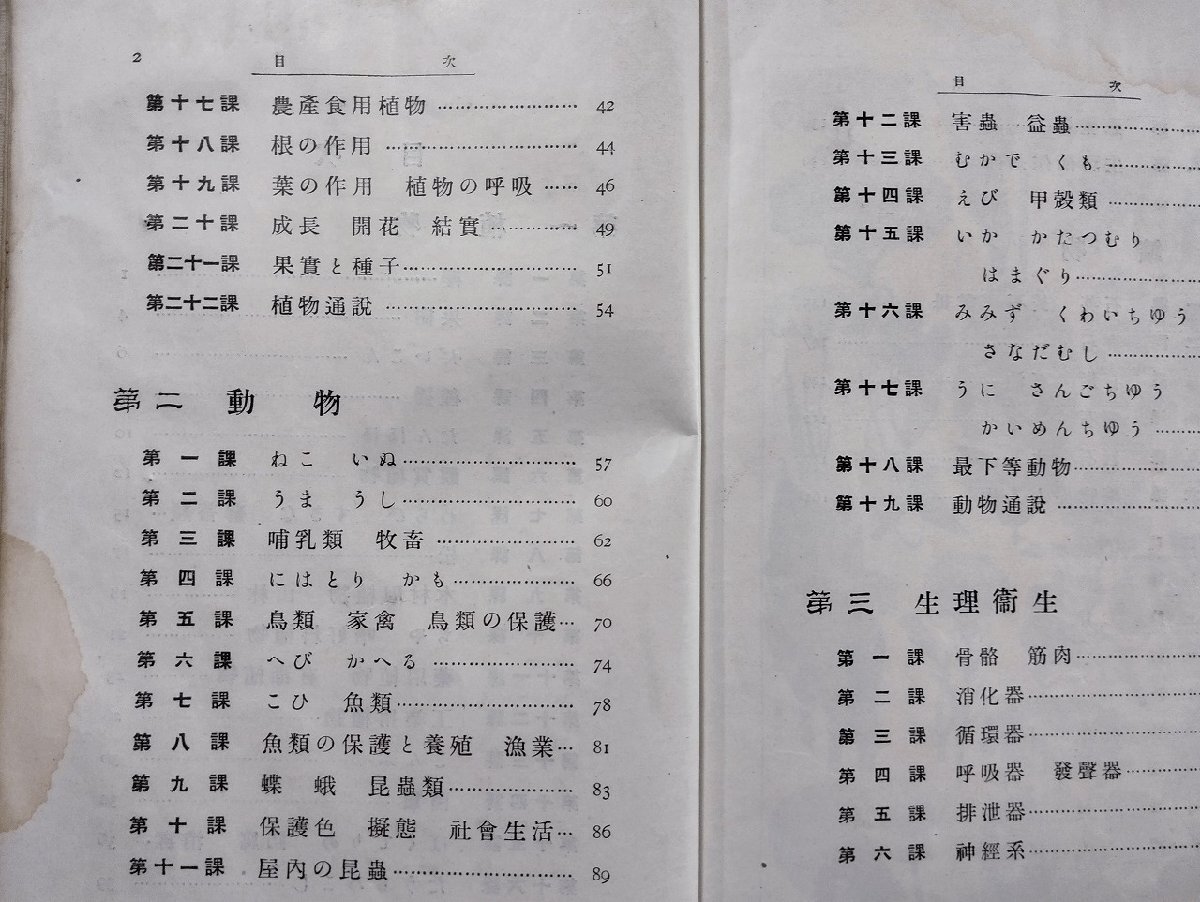 2 目次
第十七課 農產食用植物 ………………………… 42
第十八課 根の作用 ………………………… 44
第十九課 葉の作用 植物の呼吸 …… 46
第二十課 成長 開花 結實 ………… 49
第二十一課 果實と種子 ………………………… 51
第二十二課 植物通說 ………………………… 54
第二 動物
第一課 ねこ いぬ ………………………… 57
第二課 うま うし ………………………… 60
第三課 哺乳類 牧畜 ………………… 62
第四課 にはとり かも ………………… 66
第五課 鳥類 家禽 鳥類の保護 … 70
第六課 へび かへる ………………… 74
第七課 こひ 魚類 ………………………… 78
第八課 魚類の保護と養殖 漁業 … 81
第九課 蝶 蛾 昆蟲類 ………………… 83
第十課 保護色 擬態 社會生活 … 86
第十一課 屋內の昆蟲 ………………………… 89
目次
第十二課 害蟲 益蟲 …………
第十三課 むかで くも …………
第十四課 えび 甲殼類 …………
第十五課 いか かたつむり
はまぐり …………
第十六課 みみず くわいちゆう
さなだむし …………
第十七課 うに さんごちゆう
かいめんちゆう ……
第十八課 最下等動物 …………
第十九課 動物通說 …………
第三 生理衞生
第一課 骨骼 筋肉 …………
第二課 消化器 …………
第三課 循環器 …………
第四課 呼吸器 發聲器 ……
第五課 排泄器 …………
第六課 神經系 …………